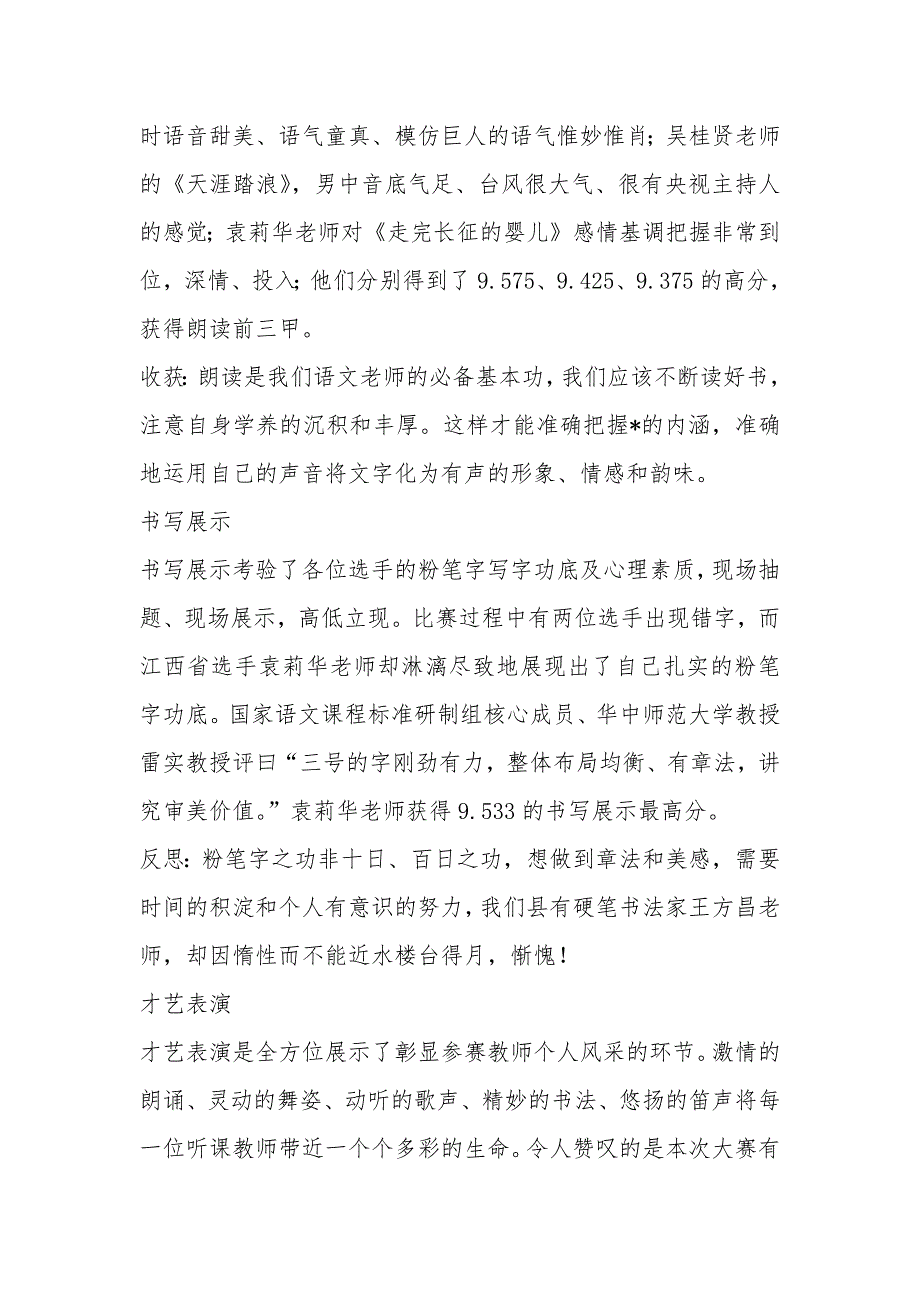 时语音甜美、语气童真、模仿巨人的语气惟妙惟肖；吴桂贤老师
的《天涯踏浪》，男中音底气足、台风很大气、很有央视主持人
的感觉；袁莉华老师对《走完长征的婴儿》感情基调把握非常到
位，深情、投入；他们分别得到了 9.575、9.425、9.375 的高分，
获得朗读前三甲。
收获：朗读是我们语文老师的必备基本功，我们应该不断读好书，
注意自身学养的沉积和丰厚。这样才能准确把握*的内涵，准确
地运用自己的声音将文字化为有声的形象、情感和韵味。
书写展示
书写展示考验了各位选手的粉笔字写字功底及心理素质，现场抽
题、现场展示，高低立现。比赛过程中有两位选手出现错字，而
江西省选手袁莉华老师却淋漓尽致地展现出了自己扎实的粉笔
字功底。国家语文课程标准研制组核心成员、华中师范大学教授
雷实教授评曰“三号的字刚劲有力，整体布局均衡、有章法，讲
究审美价值。”袁莉华老师获得 9.533 的书写展示最高分。
反思：粉笔字之功非十日、百日之功，想做到章法和美感，需要
时间的积淀和个人有意识的努力，我们县有硬笔书法家王方昌老
师，却因惰性而不能近水楼台得月，惭愧！
才艺表演
才艺表演是全方位展示了彰显参赛教师个人风采的环节。激情的
朗诵、灵动的舞姿、动听的歌声、精妙的书法、悠扬的笛声将每
一位听课教师带近一个个多彩的生命。令人赞叹的是本次大赛有